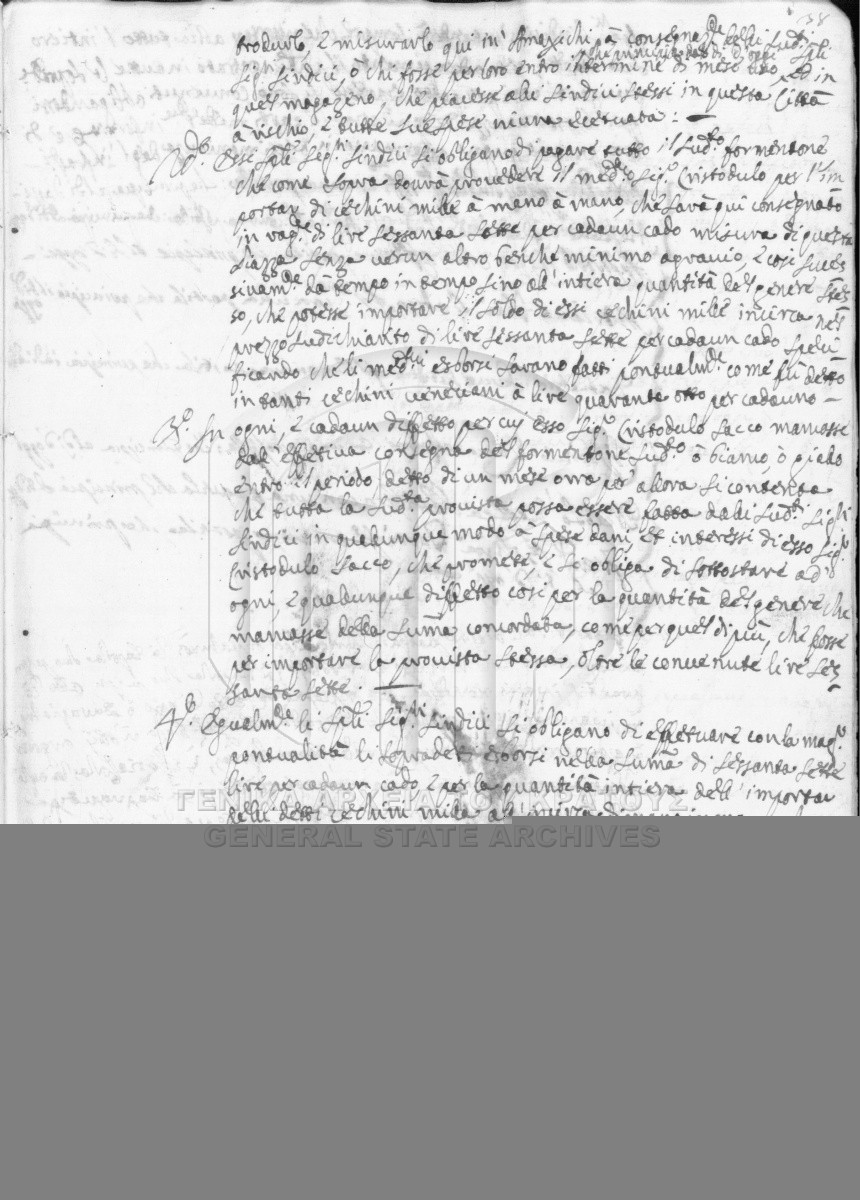 38
trodurlo, e misurarlo qui in' Amaxichi à consegna delli Sud.ti
che principia dal dì d'oggi
Sig.ri Sindici, ò chi fosse per loro entro il termine di mese uno, ed in
quel magazeno, che piacesse alli Sindici stessi in questa Città
à rischio, e tutte sue spese niuna ecetuata: —
2.do Essi Sp.li Sig.ri Sindici si obligano di pagare tutto il Sud.to formentone
che come sopra dovrà provedere il med.mo Sig.r Cristodulo per l'im
portar di cechini mille à mano à mano, che sarà qui consegnato
in rag.e di lire sessanta sette per cadaun cado misura di questa
Piazza senza verun altro benchè minimo agravio, e così suces
sivam.te dà tempo in tempo sino al'intiera quantità del genere stes
so, che potesse importare il soldo di essi cechini mille incirca nel
prezzo sudichiarito di lire sessanta sette per cadaun cado speci
ficando che li med.mi esborsi sarano fatti pontualm.te come fù detto
in tanti cechini veneziani à lire quaranta otto per cadauno —
3.o In ogni, e cadaun diffetto per cui esso Sig.r Cristodulo Sacco mancasse
dal' effetiva consegna del formentone Sud.to ò biavo, ò giallo
entro il periodo detto di un mese ora per allora si contenta
che tutta la Sud.ta provista possa essere fatta dalli Sud.ti Sig.ri
Sindici in qualunque modo à spese dani, et interessi di esso Sig.r
Cristodulo Sacco, che promete, e si obliga di sottostare ad
ogni, e qualunque diffetto così per la quantità del genere che
mancasse della summa concordata, come per quel di più, che fosse
per importare la provista stessa, oltre le convenute lire ses
santa sette. —
4.to Egualm.te li Sp.li Sig.ri Sindici si obligano di effetuare con la mag.r
pontualità li sopradetti esborsi nella summa di sessanta sette
lire per cadaun cado, e per la quantità intiera dell' importar
delli detti cechini mille
ΓΕΝΙΚΑ ΑΡΧΕΙΑ ΤΟΥ ΚΡΑΤΟΥΣ
GENERAL STATE ARCHIVES